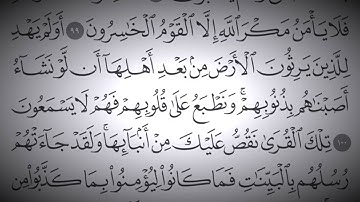 فَلَا يَأْمَنُ مَكْرَ ٱللَّهِ إِلَّا ٱلْقَوْمُ ٱلْخَـٰسِرُونَ ٩٩ أَوَلَمْ يَهْدِ
لِلَّذِينَ يَرِثُونَ ٱلْأَرْضَ مِنۢ بَعْدِ أَهْلِهَآ أَن لَّوْ نَشَآءُ
أَصَبْنَـٰهُم بِذُنُوبِهِمْ ۚ وَنَطْبَعُ عَلَىٰ قُلُوبِهِمْ فَهُمْ لَا يَسْمَعُونَ
١٠٠ تِلْكَ ٱلْقُرَىٰ نَقُصُّ عَلَيْكَ مِنْ أَنۢبَآئِهَا ۚ وَلَقَدْ جَآءَتْهُمْ
رُسُلُهُم بِٱلْبَيِّنَـٰتِ فَمَا كَانُوا۟ لِيُؤْمِنُوا۟ بِمَا كَذَّبُوا۟ مِن